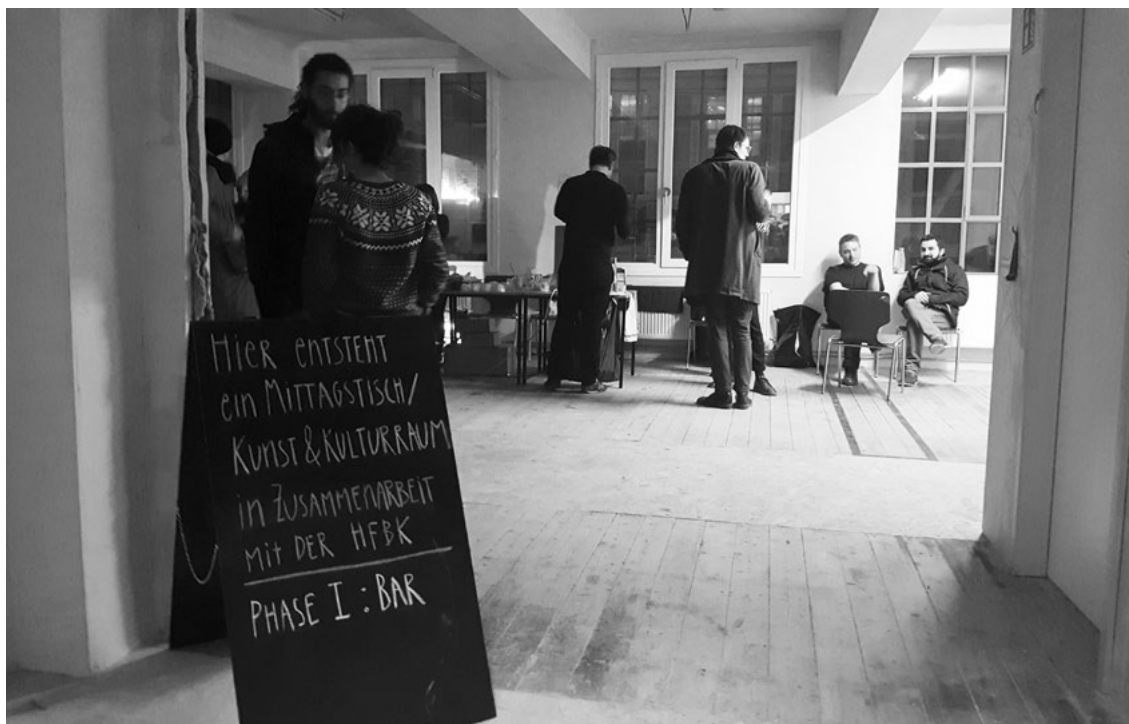 Hier entsteht
ein Mittagstisch/
Kunst & Kulturraum
in Zusammenarbeit
mit der HFBK
Phase I : Bar